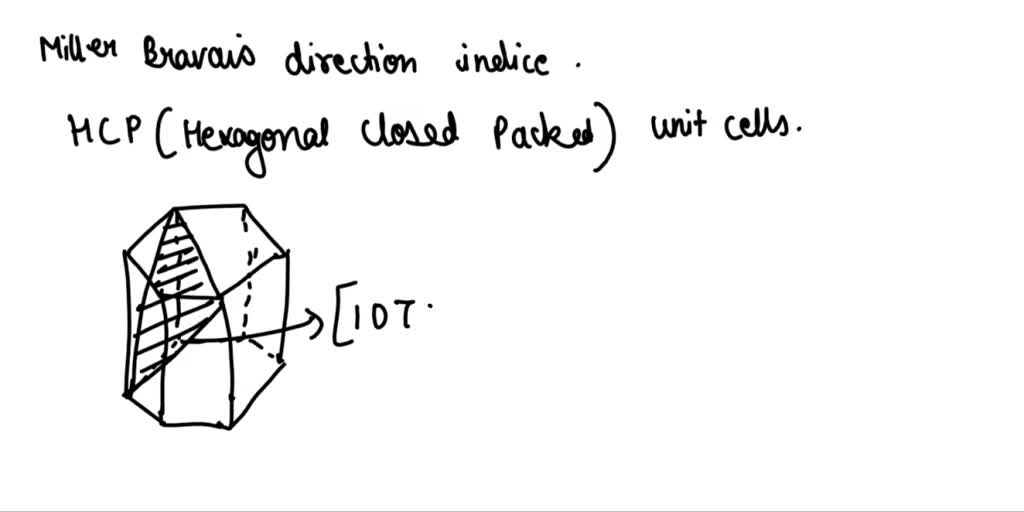 Miller Bravais direction indice .
HCP (Hexagonal Closed Packed) unit cells.
[10T